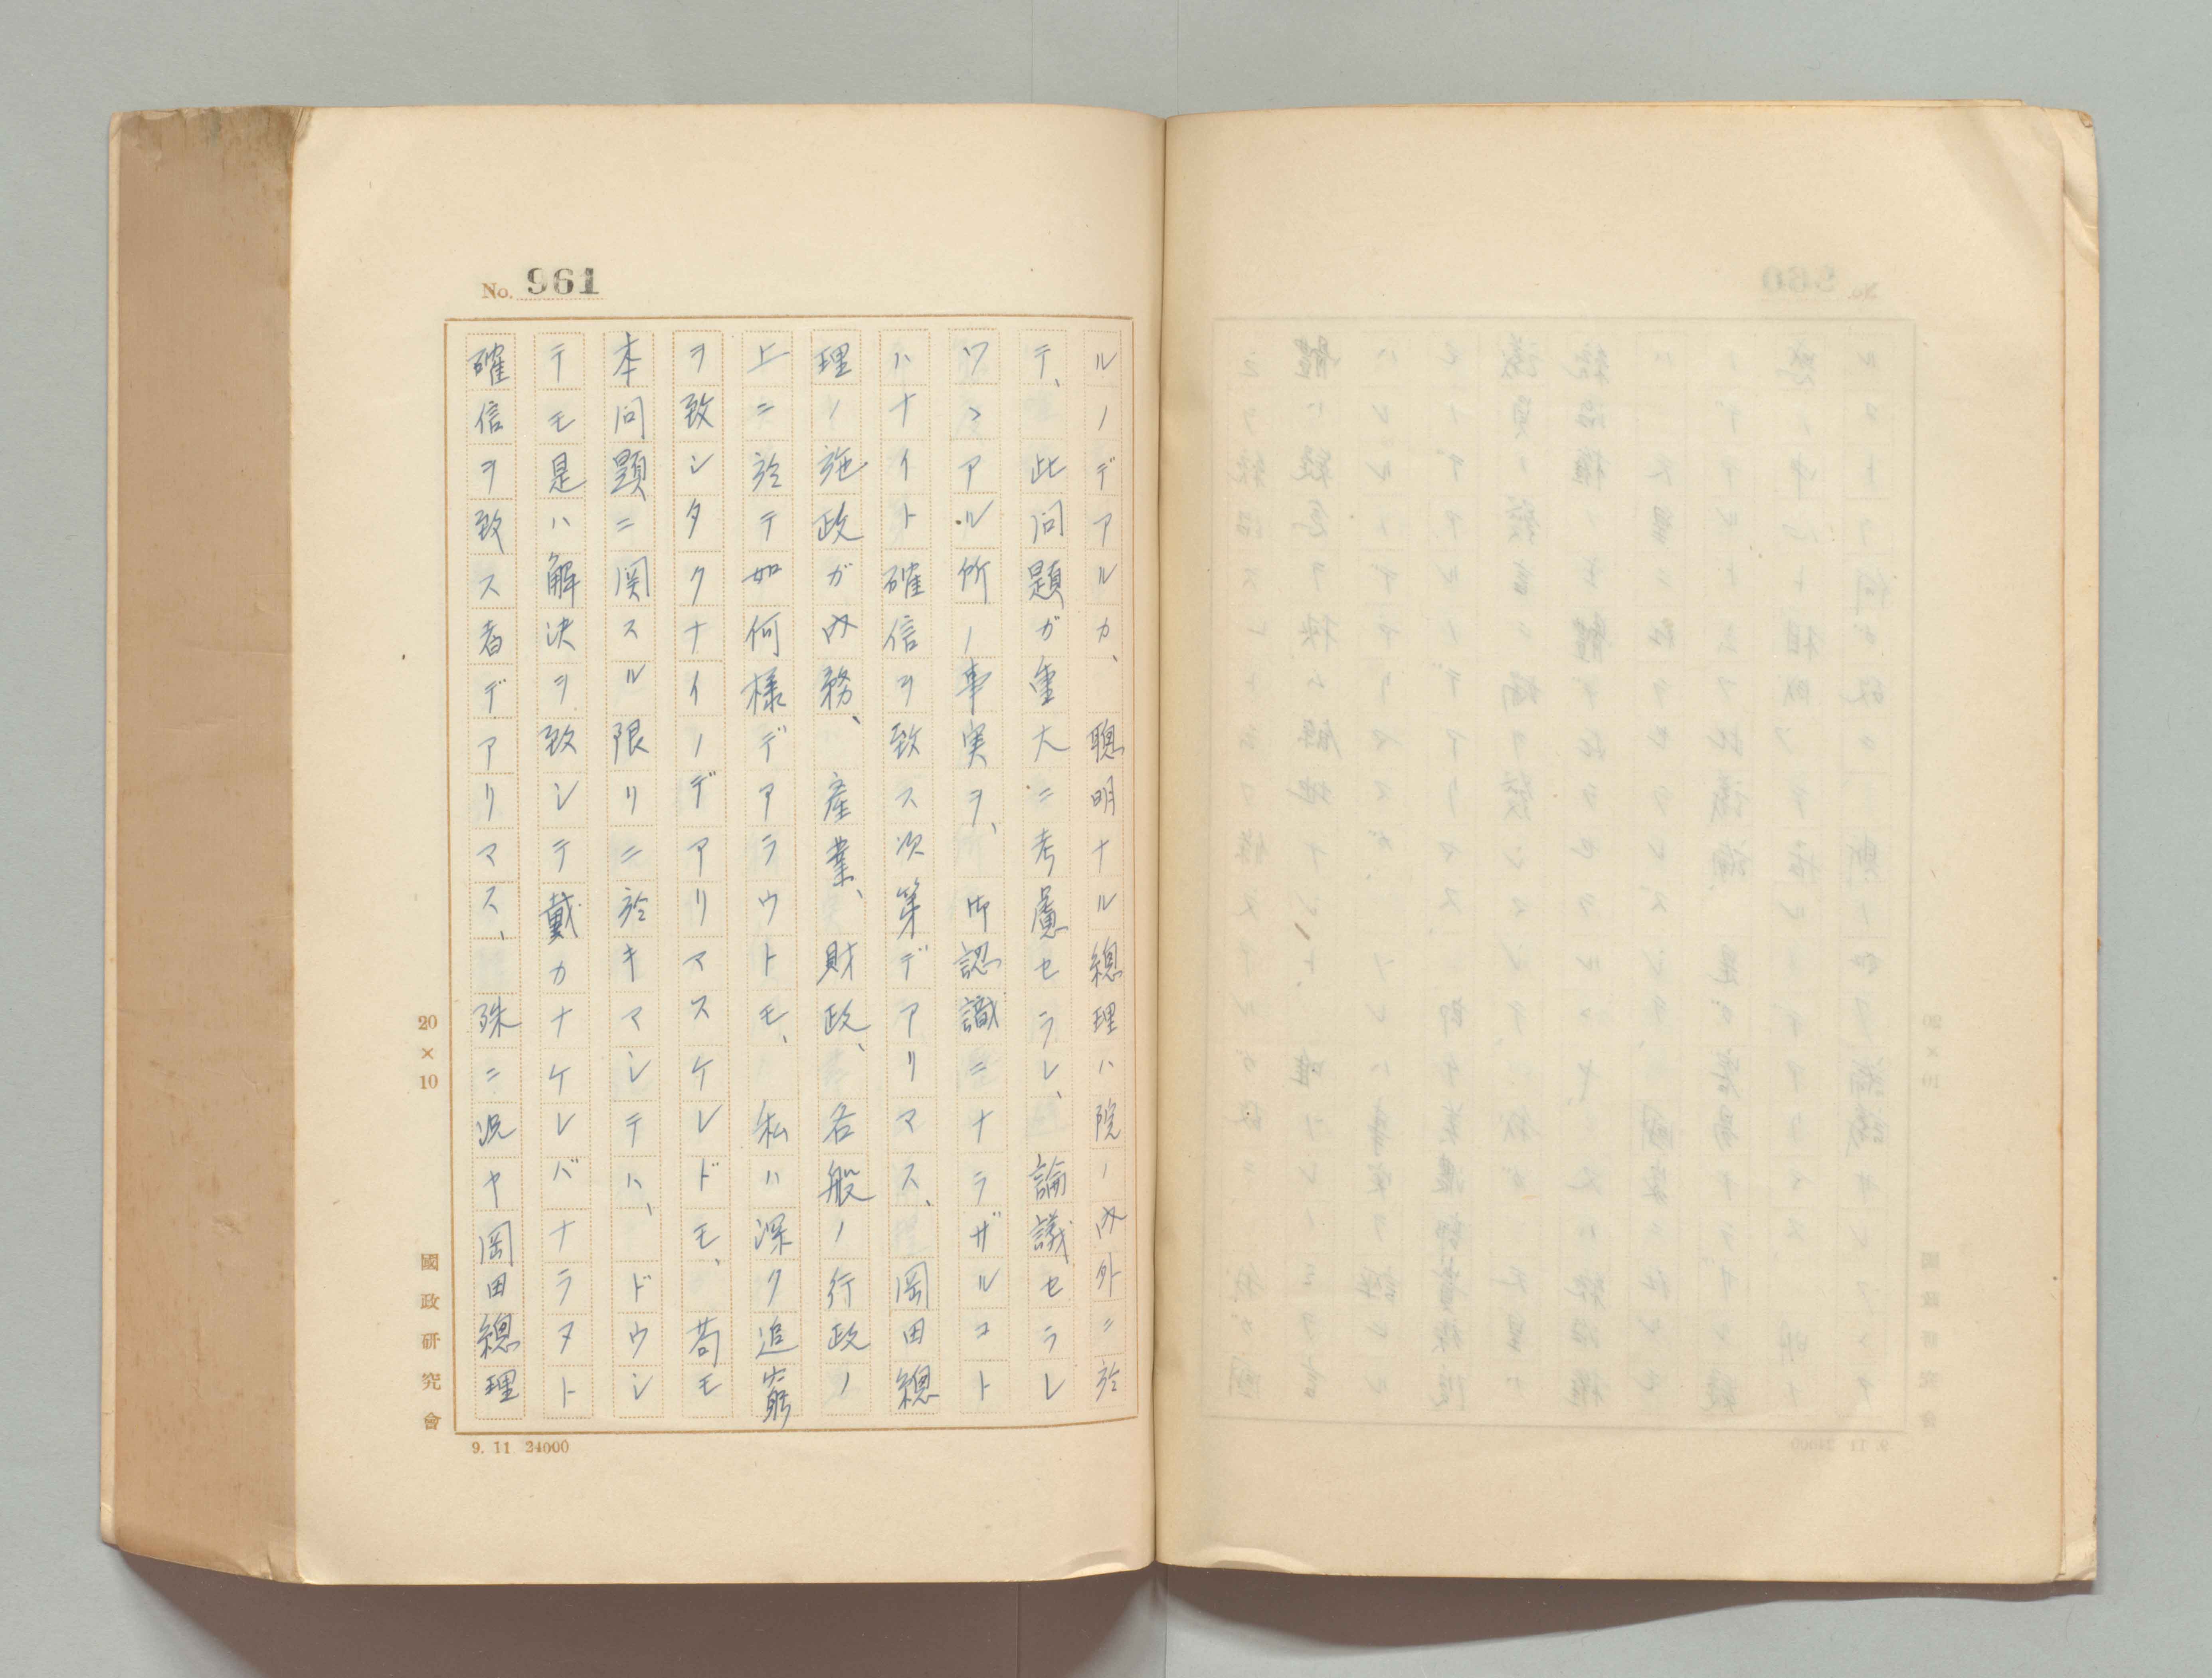 No. 961
ルノデアルカ、聰明ナル總理ハ院ノ内外ニ於
テ、此問題ガ重大ニ考慮セラレ、論議セラレ
ツヽアル所ノ事実ヲ、御認識ニナラザルコト
ハナイト確信ヲ致ス次第デアリマス、岡田總
理ノ施政ガ内務、産業、財政、各般ノ行政ノ
上ニ於テ如何様デアラウトモ、私ハ深ク追窮
ヲ致シタクナイノデアリマスケレドモ、苟モ
本問題ニ関スル限リニ於キマシテハ、ドウシ
テモ是ハ解決ヲ致シテ戴カナケレバナラヌト
確信ヲ致ス者デアリマス、殊ニ況ヤ岡田總理
20×10
國政研究會
9. 11 24000